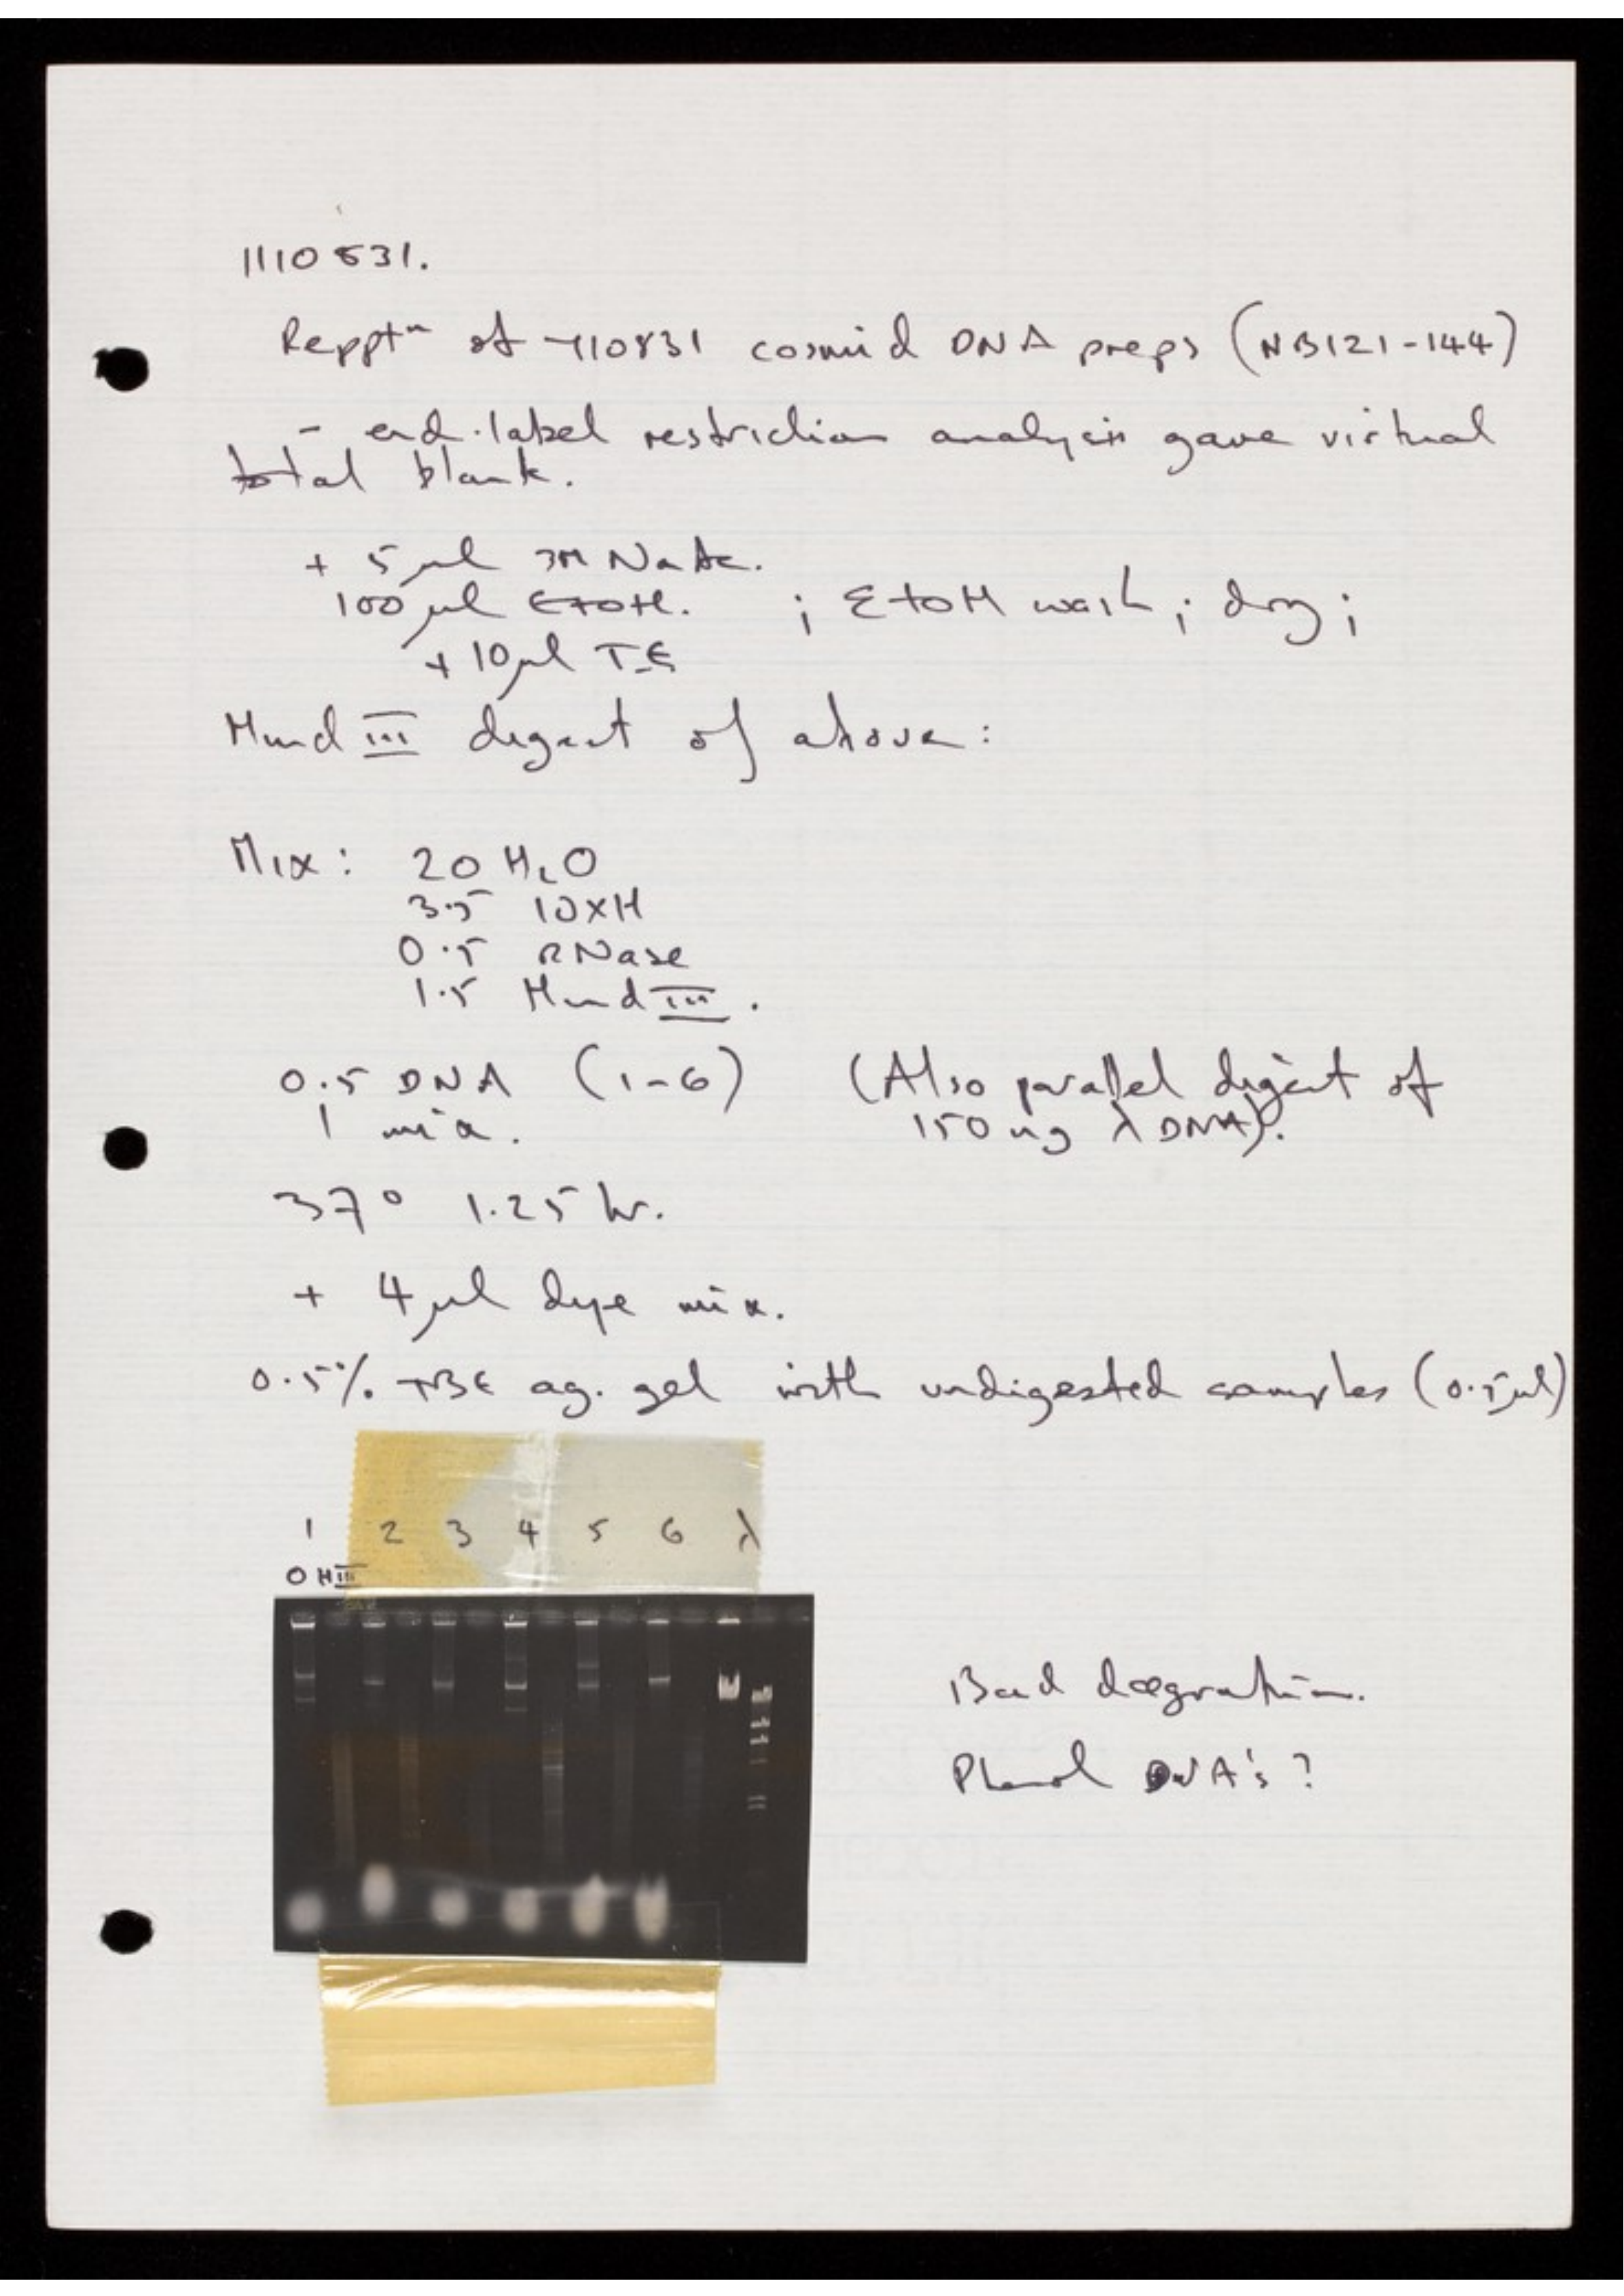 1110831.
Reppt<sup>n</sup> of 110831 cosmid DNA preps (NB121-144)
- end-label restriction analysis gave virtual
total blank.
+ 5 µl 3M NaAc.
100 µl EtOH. ; EtOH wash ; dry ;
+ 10 µl T.E
Hind III digest of above:
Mix: 20 H₂O
3.5 10xH
0.5 RNase
1.5 Hind III.
0.5 DNA (1-6) (Also parallel digest of
1 mix. 150 ng λ DNA).
37° 1.25 hr.
+ 4 µl dye mix.
0.5% TBE ag. gel with undigested samples (0.5 µl)
1 2 3 4 5 6 λ
O HIII
Bad
Phenol DNA's?